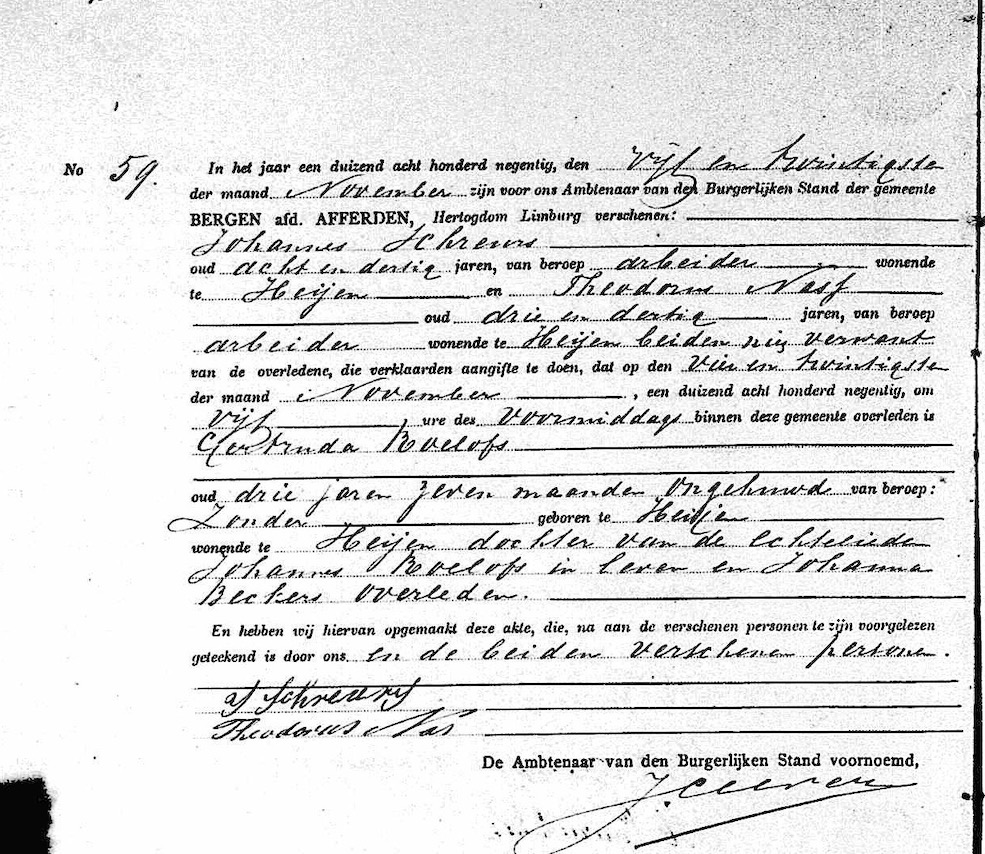 No 59. In het jaar een duizend acht honderd negentig, den Vijf en twintigste
der maand November zijn voor ons Ambtenaar van den Burgerlijken Stand der gemeente
BERGEN afd. AFFERDEN, Hertogdom Limburg verschenen:
Johannes Schreurs
oud acht en dertig jaren, van beroep arbeider wonende
te Heijen en Theodorus
oud drie en dertig jaren, van beroep
arbeider wonende te Heijen beiden verwant
van de overledene, die verklaarden aangifte te doen, dat op den Vier en twintigste
der maand November, een duizend acht honderd negentig, om
Vijf ure des Voormiddags binnen deze gemeente overleden is
Gertruda Roelofs
oud drie jaren zeven maanden ongehuwd van beroep:
Zonder geboren te Heijen
wonende te Heijen dochter van de echtelieden
Johannes Roelofs in leven en Johanna
Beckers overleden.
En hebben wij hiervan opgemaakt deze akte, die, na aan de verschenen personen te zijn voorgelezen
geteekend is door ons en de beiden verschenen personen.
Schreurs
Theodorus Nas
De Ambtenaar van den Burgerlijken Stand voornoemd,